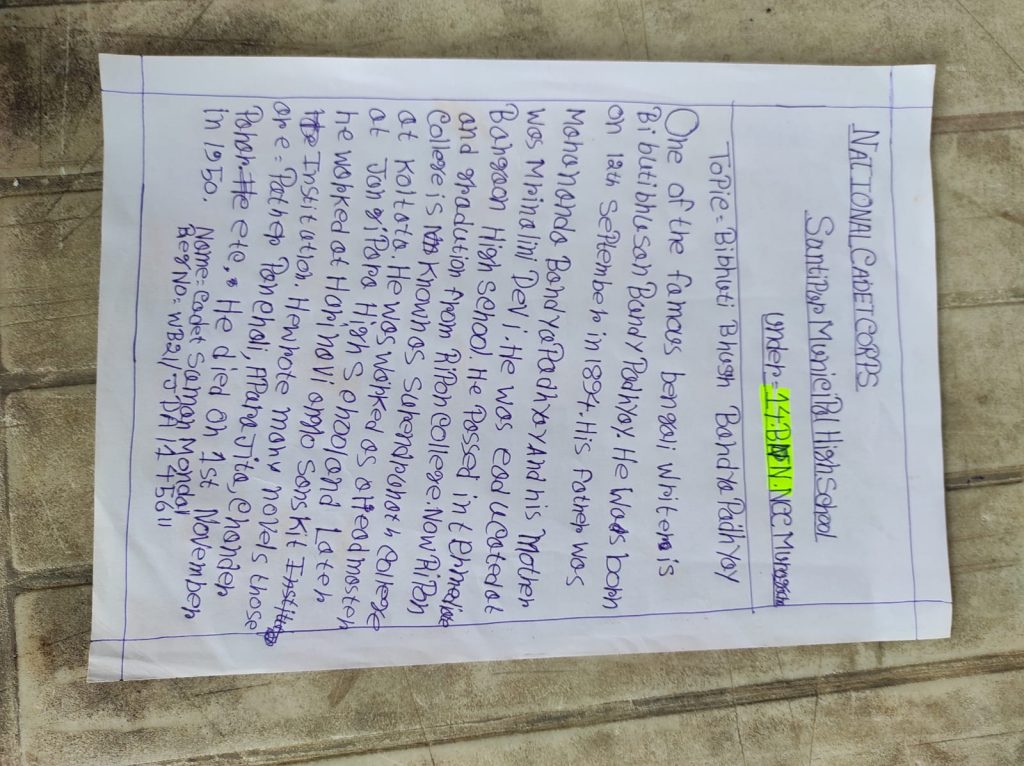 NATIONAL CADET CORPS
Santipur Municipal High School
under = 14.BN.NCC.
Topic = Bibhuti Bhush Bandya Padhyay
One of the famous bengali writer is
Bibutibhusan Bandy Padhyay. He was born
on 12th September in 1894. His father was
Mahananda Bandya Padhyay And his mother
was Mrinalini Devi. He was eaducated at
Bangaon High School. He Passed
and gradution from RiPon College. Now RiPon
College is known as Surendranath College
at Kolkata. He was worked as a Head master
at JangiPara High School and Later
he worked at Harinavi anglo Sanskit
Institution. He wrote many novels those
are = Pather Panchali, APara Jita, Chander
Pahar etc. He died on 1st November
in 1950. Name = Cadet Saman Mondal
Reg No = WB21/JDA 114561